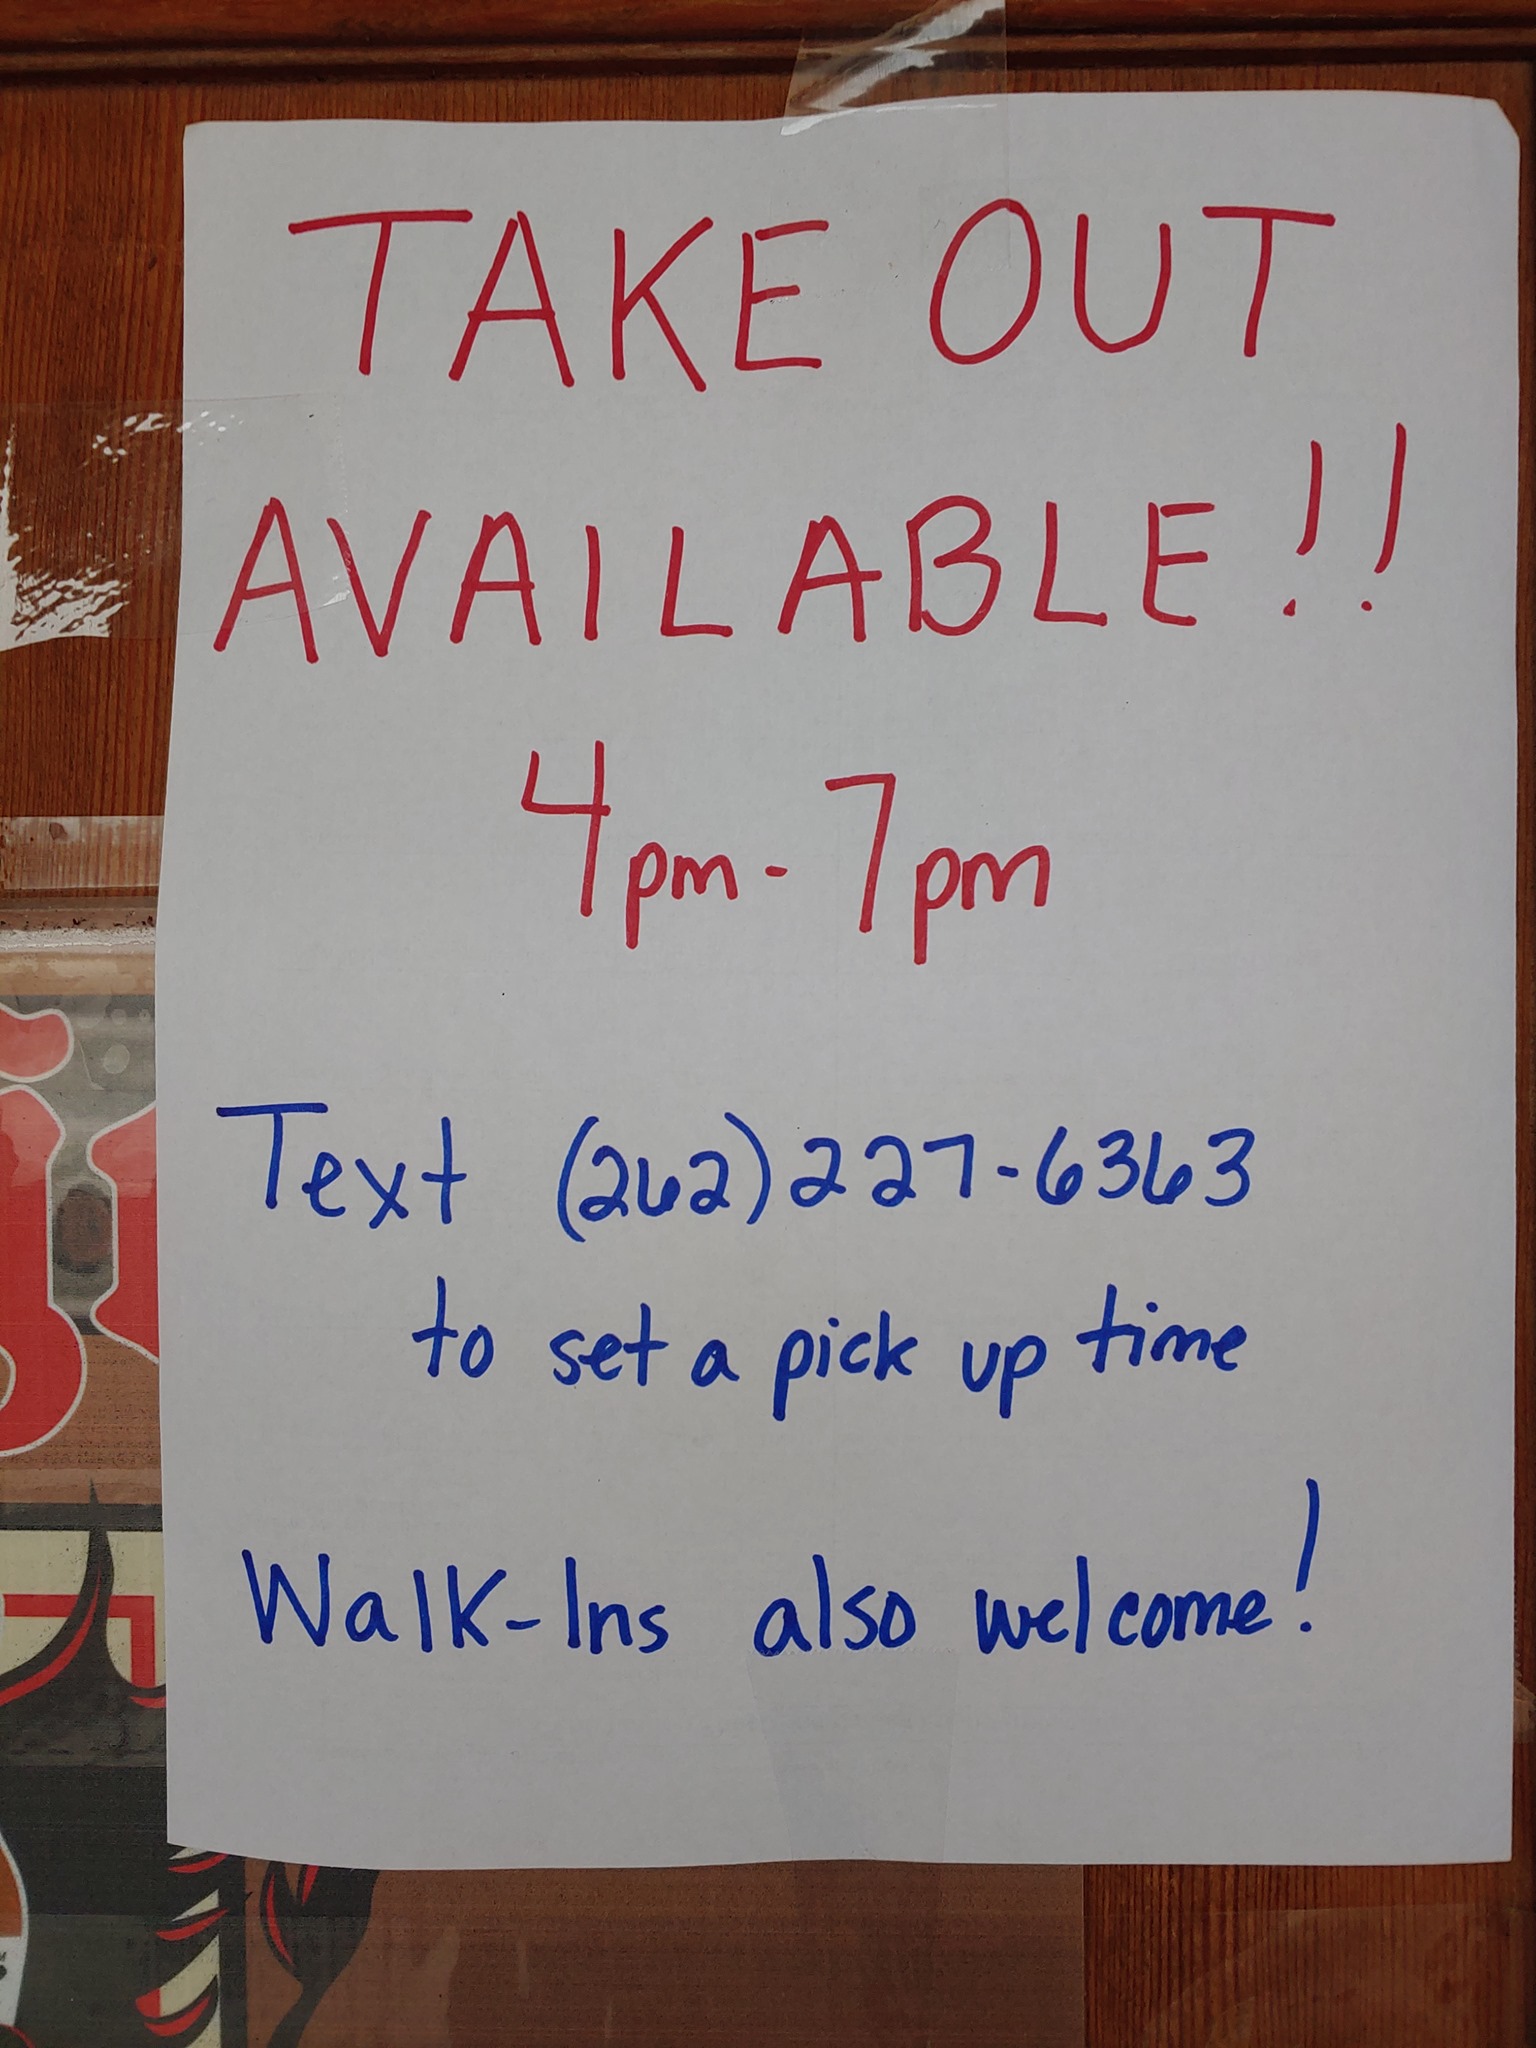 TAKE OUT
AVAILABLE!!
4pm-7pm
Text (262)227-6363
to set a pick up time
Walk-Ins also welcome!